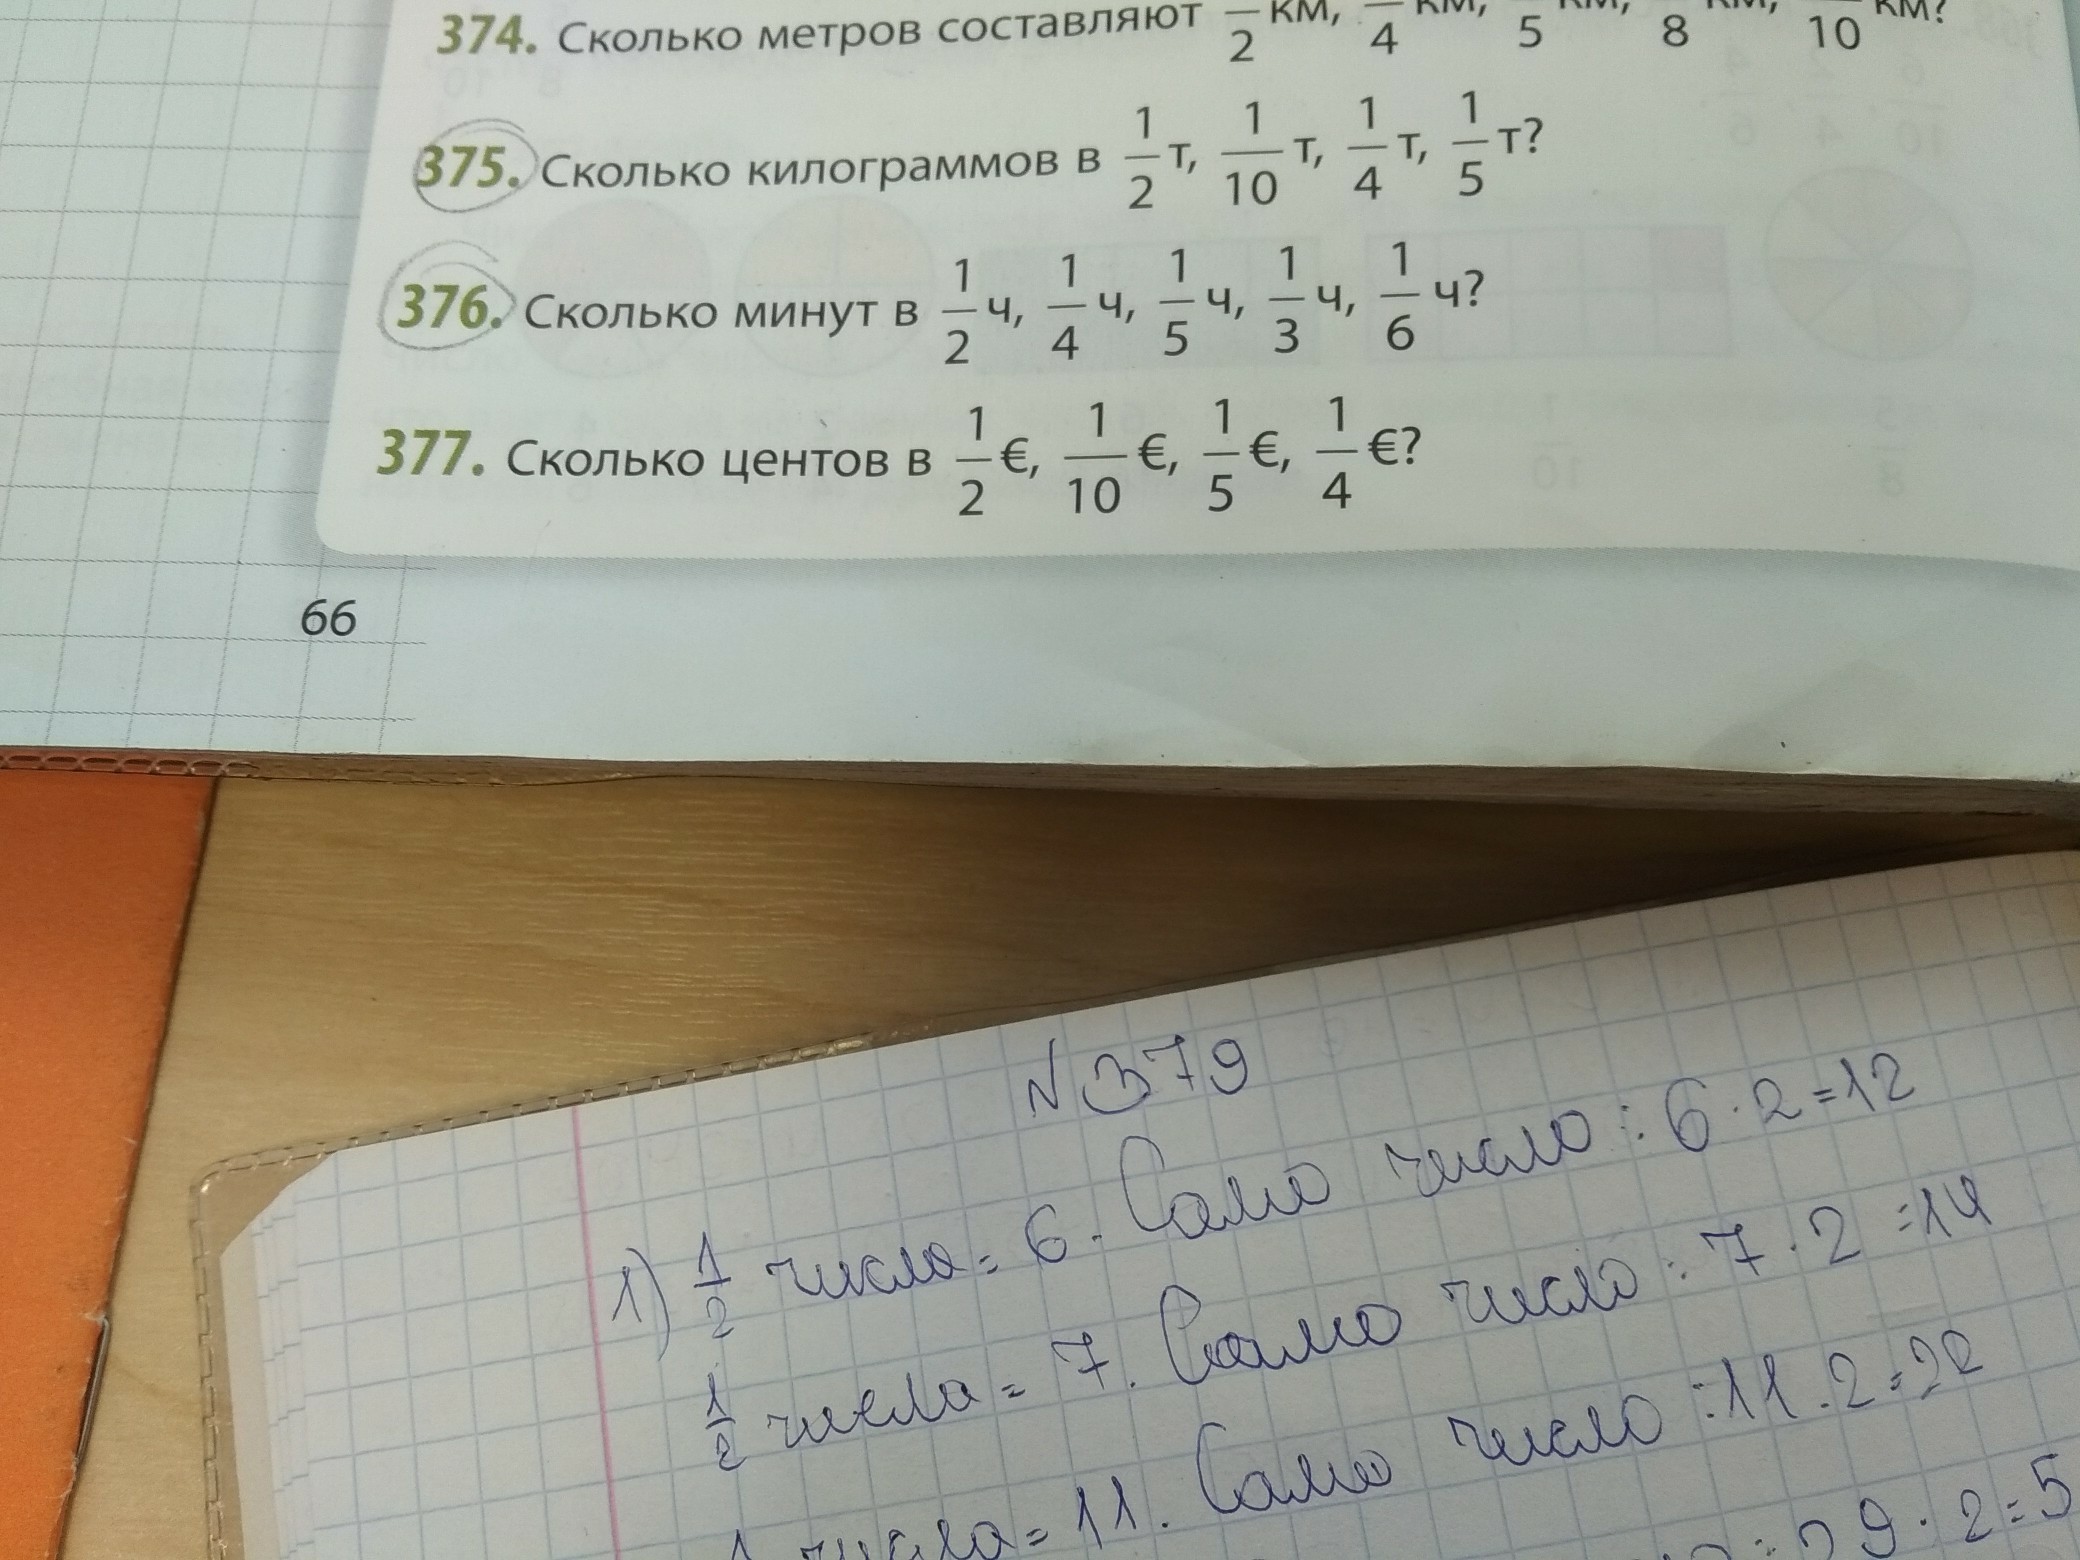 374. Сколько метров составляют —/2 км, —/4 км, /5 км, /8 км, /10 км?
375. Сколько килограммов в 1/2 т, 1/10 т, 1/4 т, 1/5 т?
376. Сколько минут в 1/2 ч, 1/4 ч, 1/5 ч, 1/3 ч, 1/6 ч?
377. Сколько центов в 1/2 €, 1/10 €, 1/5 €, 1/4 €?
66
N 379
1) 1/2 числа = 6. Само число : 6 · 2 = 12
1/2 числа = 7. Само число : 7 · 2 = 14
числа = 11. Само число : 11 · 2 = 22
9 · 2 = 5